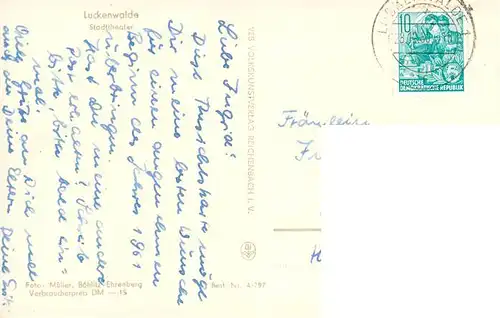 Luckenwalde
Stadttheater
Liebe Ingrid!
Diese Ansichtskarte möge
Dir meine besten Wünsche
für einen angenehmen
Beginn des Jahres 1961
überbringen.
Hast Du meine andere
Post erhalten? Schreibe
bitte, bitte bald ein-
mal.
Viele Grüße an Dich und
auch an Deine Eltern Deine
Foto: Möller, Böhlitz-Ehrenberg
Verbraucherpreis DM —.15
VEB VOLKSKUNSTVERLAG REICHENBACH i. V.
Best.-Nr. A 297
10
DEUTSCHE
DEMOKRATISCHE REPUBLIK
Fräulein